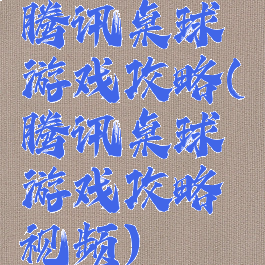 腾讯桌球
游戏攻略(
腾讯桌球
游戏攻略
视频)